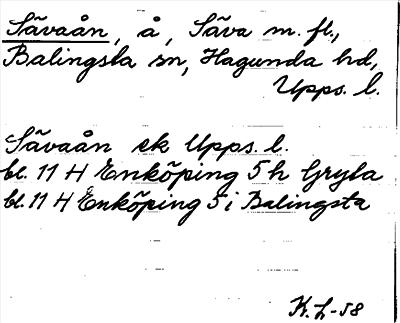 Sävaån, å, Säva m. fl.,
Balingsta sn, Hagunda hd,
Upps. l.
Sävaån ek Upps. l.
bl. 11 H Enköping 5 h Gryta
bl. 11 H Enköping 5 i Balingsta
K. L-58